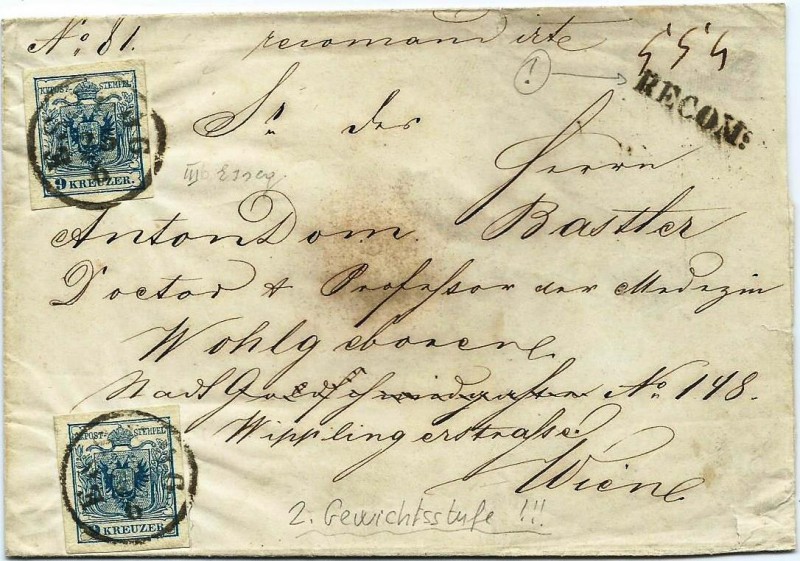 No 81. recomandirte 554
RECOM:
KKPOST-STEMPEL
9 KREUZER.
Sr des
Herrn
IIIb Esseg
Anton Dom Bastler
Doctor & Professor der Medezin
Wohlgeborene
Stadt Goldschmidgasse No 148.
Wipplingerstraße
Wiene
KKPOST-STEMPEL
9 KREUZER
2. Gewichtsstufe !!!